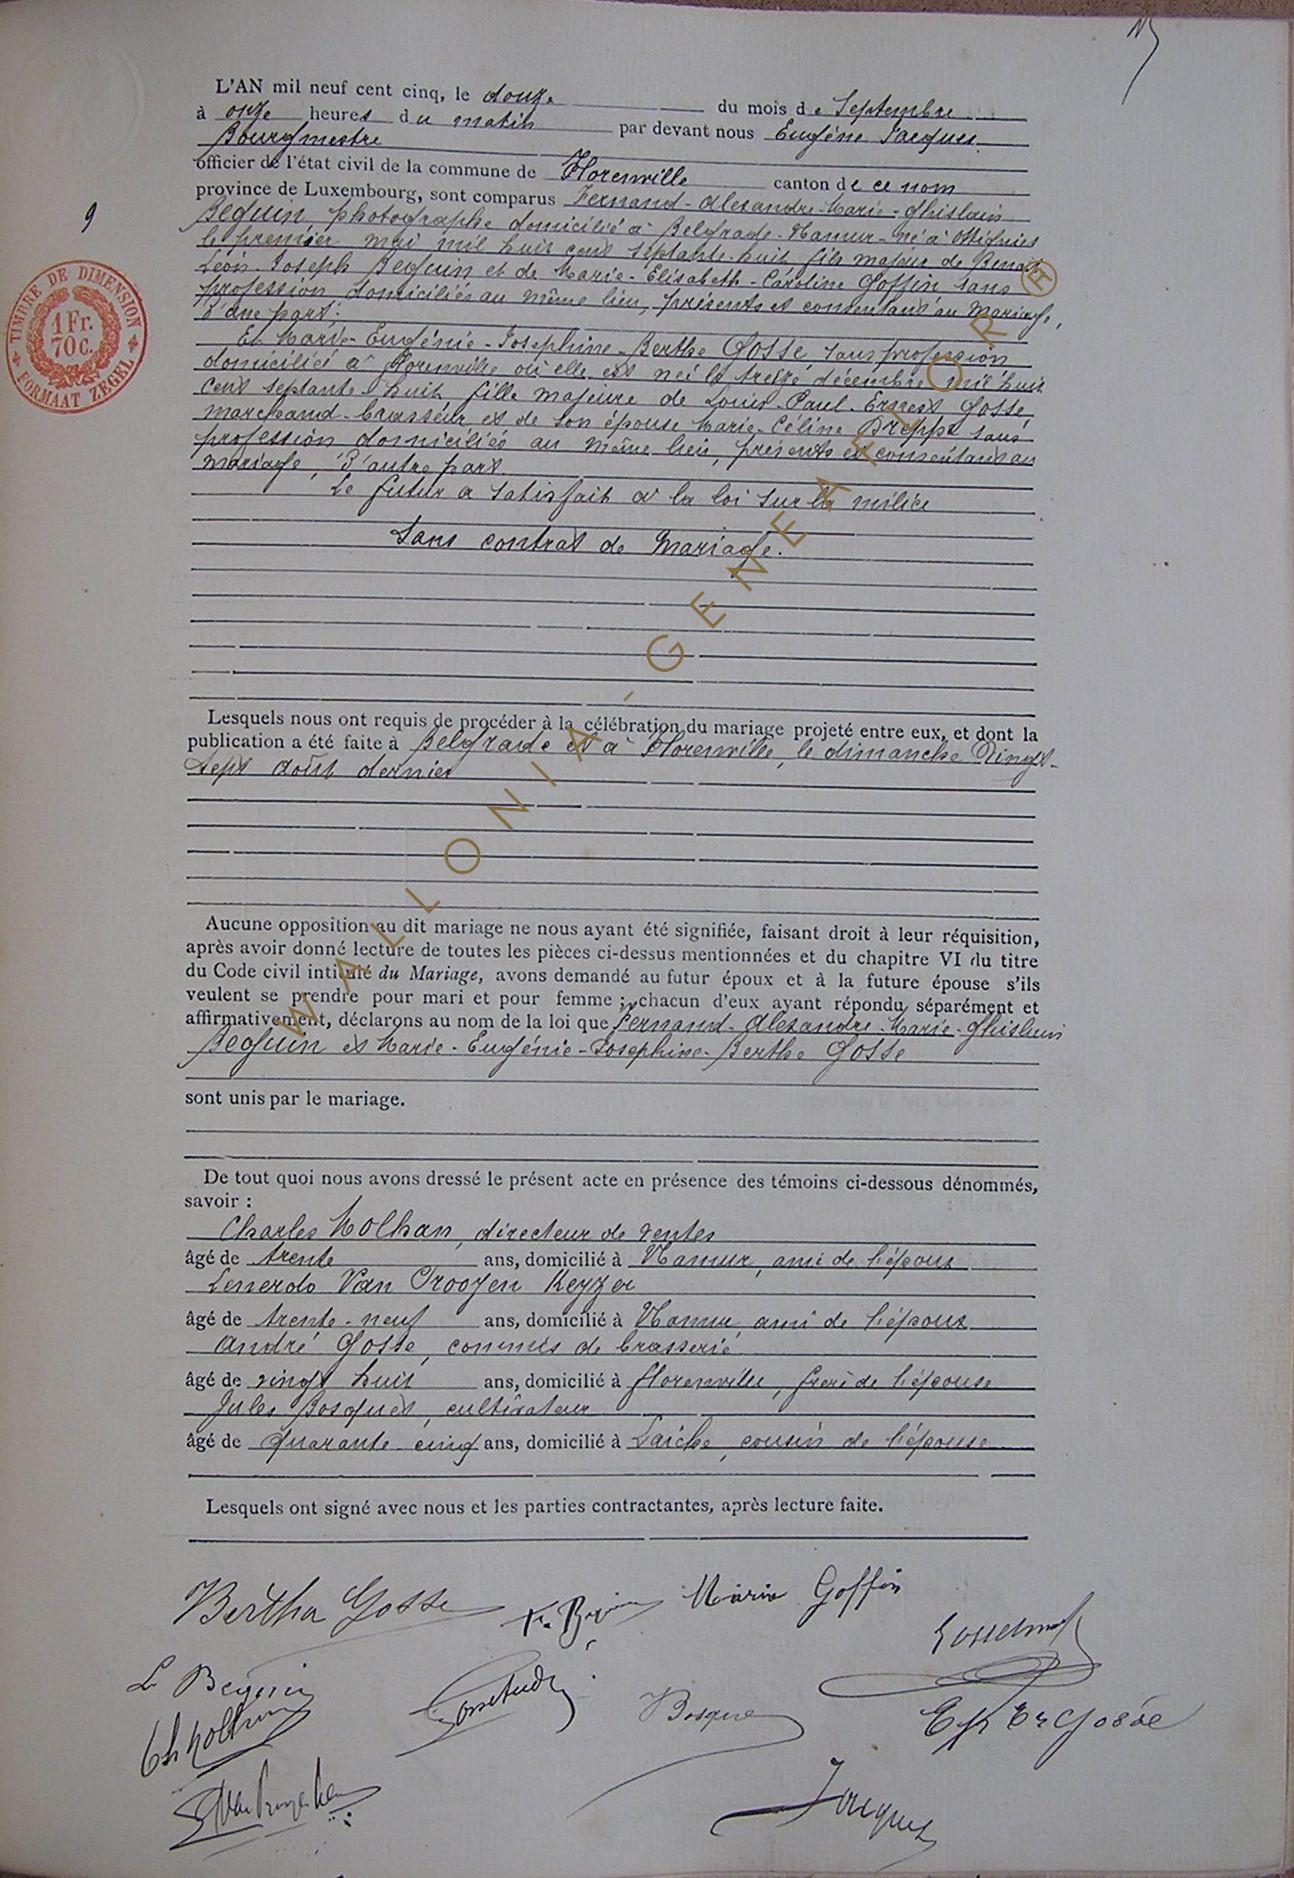 L'AN mil neuf cent cinq, le douze du mois de Septembre
à onze heures du matin par devant nous Eugène Jacques
Bourgmestre
officier de l'état civil de la commune de Florenville canton de ce nom
province de Luxembourg, sont comparus Fernand-Alexandre-Marie-Ghislain
Bequin photographe domicilié à Belgrade-Namur-né à Ottignies
le premier mai mil huit cent septante-huit fils majeur de Benoit
Léon Joseph Bequin et de Marie-Elisabeth-Caroline Goffin sans
profession domiciliés au même lieu, présents et consentans au mariage,
d'une part:
Et Marie-Eugénie-Joséphine-Berthe Gosse sans profession
domiciliée à Florenville où elle est née le treize décembre mil huit
cent septante-huit fille majeure de Louis-Paul-Ernest Gosse,
marchand-brasseur et de son épouse Marie-Céline sans
profession domiciliés au même lieu, présents et consentans au
mariage, d'autre part.
Le futur a satisfait à la loi sur la milice
Sans contrat de Mariage.
Lesquels nous ont requis de procéder à la célébration du mariage projeté entre eux, et dont la
publication a été faite à Belgrade et à Florenville, le dimanche Vingt-
sept août dernier
Aucune opposition au dit mariage ne nous ayant été signifiée, faisant droit à leur réquisition,
après avoir donné lecture de toutes les pièces ci-dessus mentionnées et du chapitre VI du titre
du Code civil intitulé du Mariage, avons demandé au futur époux et à la future épouse s'ils
veulent se prendre pour mari et pour femme ; chacun d'eux ayant répondu séparément et
affirmativement, déclarons au nom de la loi que Fernand-Alexandre-Marie-Ghislain
Bequin et Marie-Eugénie-Joséphine-Berthe Gosse
sont unis par le mariage.
De tout quoi nous avons dressé le présent acte en présence des témoins ci-dessous dénommés,
savoir :
Charles Molhan, directeur de ventes
âgé de trente ans, domicilié à Namur, ami de l'époux
Van Trooyen Keyzer
âgé de trente-neuf ans, domicilié à Namur, ami de l'époux
André Gosse, commis de brasserie
âgé de vingt huit ans, domicilié à Florenville, frère de l'épouse
Jules Bosquet, cultivateur
âgé de quarante-cinq ans, domicilié à Laiche, cousin de l'épouse
Lesquels ont signé avec nous et les parties contractantes, après lecture faite.
Bertha Gosse Marie Goffin
L. Bequin
Jacques
9
TIMBRE DE DIMENSION
1 Fr.
70 c.
FORMAAT ZEGEL
WALLONIA-GENEAFLOR ®